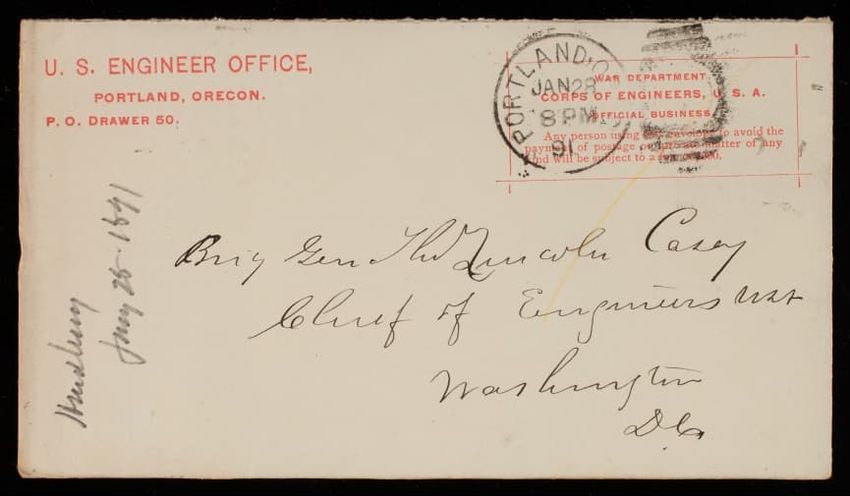 U. S. ENGINEER OFFICE,
PORTLAND, ORECON.
P. O. DRAWER 50.
PORTLAND, O
JAN 28
8 PM
91
WAR DEPARTMENT
CORPS OF ENGINEERS, U. S. A.
OFFICIAL BUSINESS
Any person using envelope to avoid the
payment of postage on matter of any
kind will be subject to a
Brig Gen Lincoln Casey
Chief of Engineers USA
Washington
DC
Handbury
Jany 28 1891